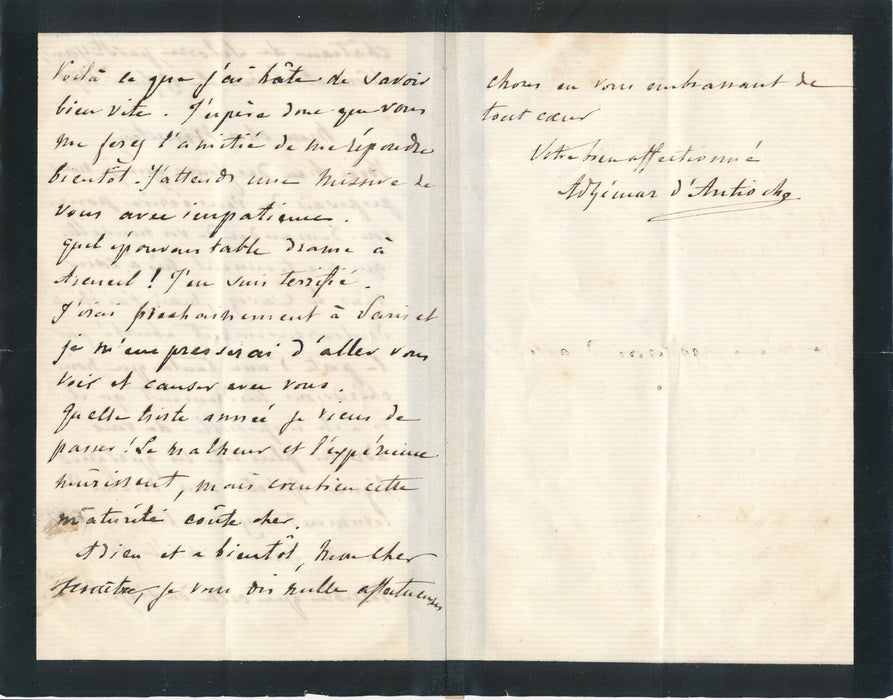 Voilà ce que j'ai hâte de savoir
bien vite. J'espère donc que vous
me ferez l'amitié de me répondre
bientôt. J'attends une missive de
vous avec impatience.
Quel épouvantable drame à
Arcueil! J'en suis terrifié.
J'irai prochainement à Paris et
je m'empresserai d'aller vous
voir et causer avec vous.
Quelle triste année je viens de
passer! Le malheur et l'expérience
mûrissent, mais combien cette
maturité coûte cher.
Adieu et a bientôt, mon cher
je vous dis mille affectueuses
choses en vous embrassant de
tout cœur
Votre bien affectionné
Adhémar d'Antioche